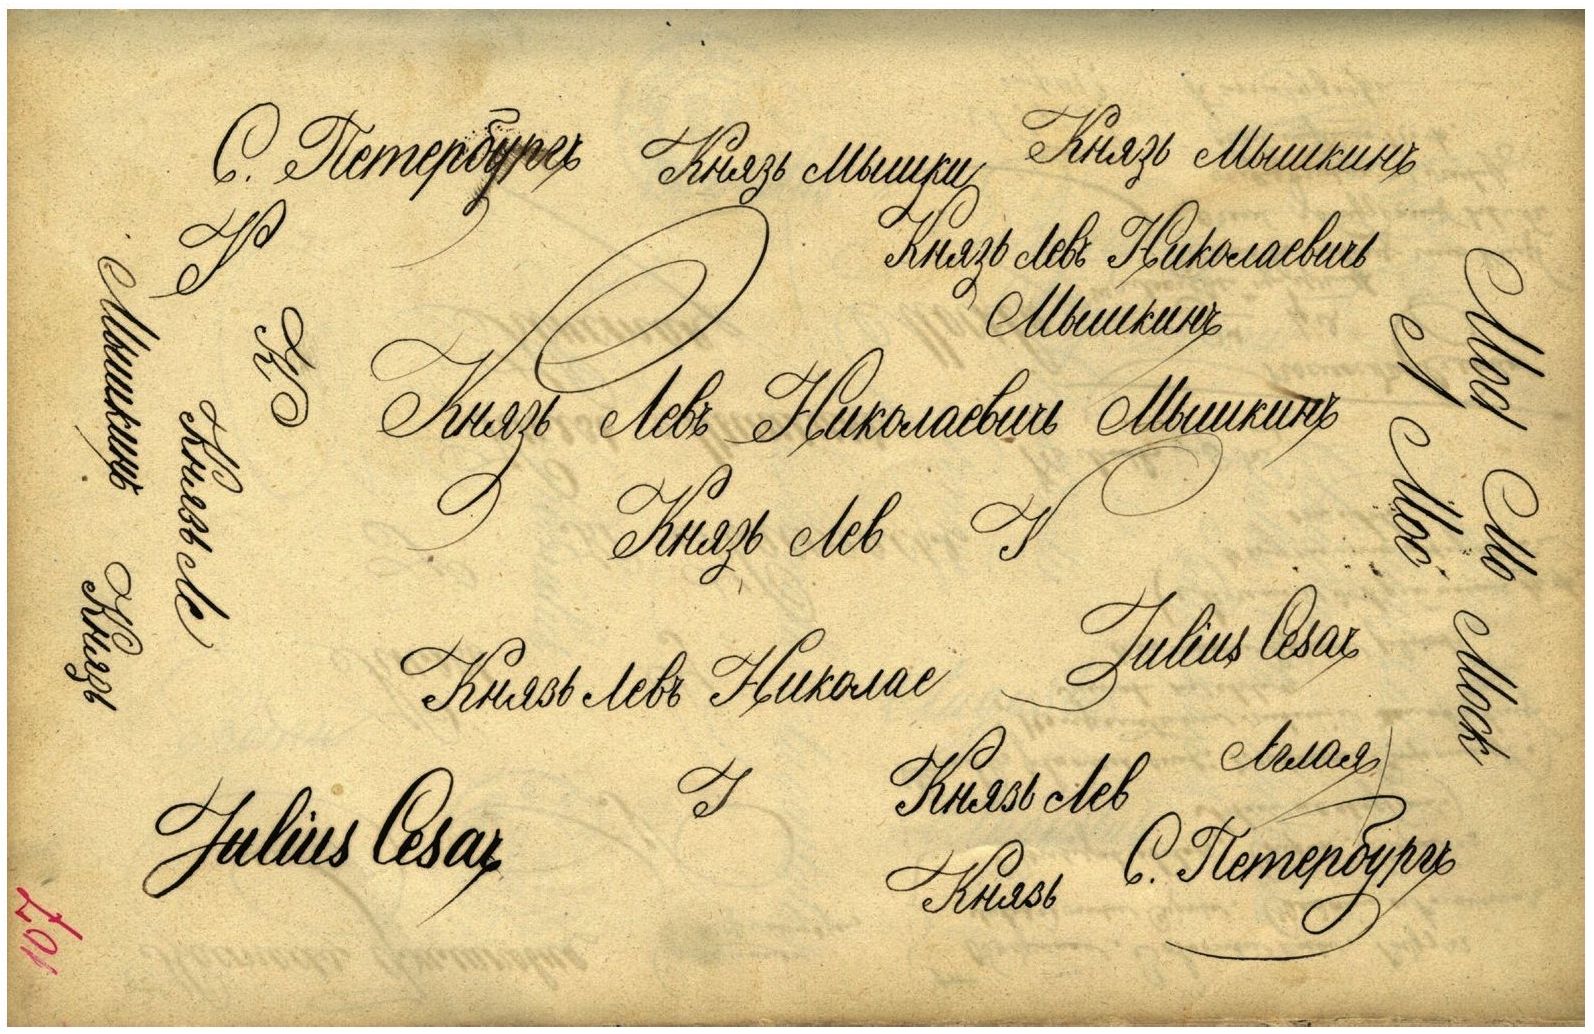 С. Петербургъ Князь Мышки Князь Мышкинъ
К
Князь Левъ Николаевичь
Мышкинъ
Князь Левъ Николаевичь Мышкинъ
Князь Лев
Julius Cesar
Князь Левъ Николае
Аглая
Князь Лев
Julius Cesar
С. Петербургъ
Князь
Мышкинъ Князь
Князь Ле
К
Моо Мо Моск
Моо
107